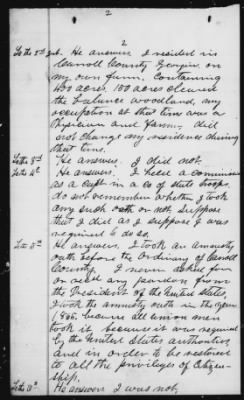 2
2
To the 2nd Int. He answers I resided in
Carroll County Georgia on
my own farm. Containing
400 acres. 100 acres cleared
the balance woodland, my
occupation at that time was a
Physician and Farmer. did
not change my residence during
that time.
To the 3d He answers. I did not.
To the 4th He answers. I held a commission
as a Capt in a Co of State troops.
do not remember whether I took
any such oath or not suppose
that I did as I suppose I was
required to do so.
To 5th He answers. I took an amnesty
oath before the Ordinary of Carroll
County. I never asked for
or recd any pardon from
the President of the United States
I took the amnesty oath in the year
1865. because all Union men
took it, because it was required
by the United States authorities
and in order to be restored
to all the privileges of Citizen-
ship.
He answers I was not,